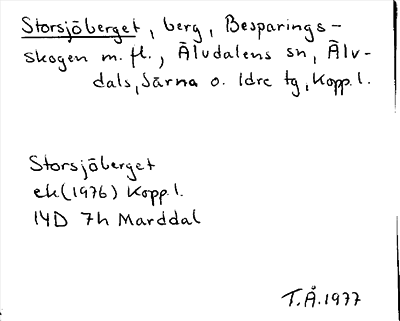 Storsjöberget, berg, Besparings-
skogen m. fl., Älvdalens sn, Älv-
dals, Särna o. Idre tg, Kopp. l.
Storsjöberget
ek (1976) Kopp. l.
14D 7h Marddal
T.Å. 1977